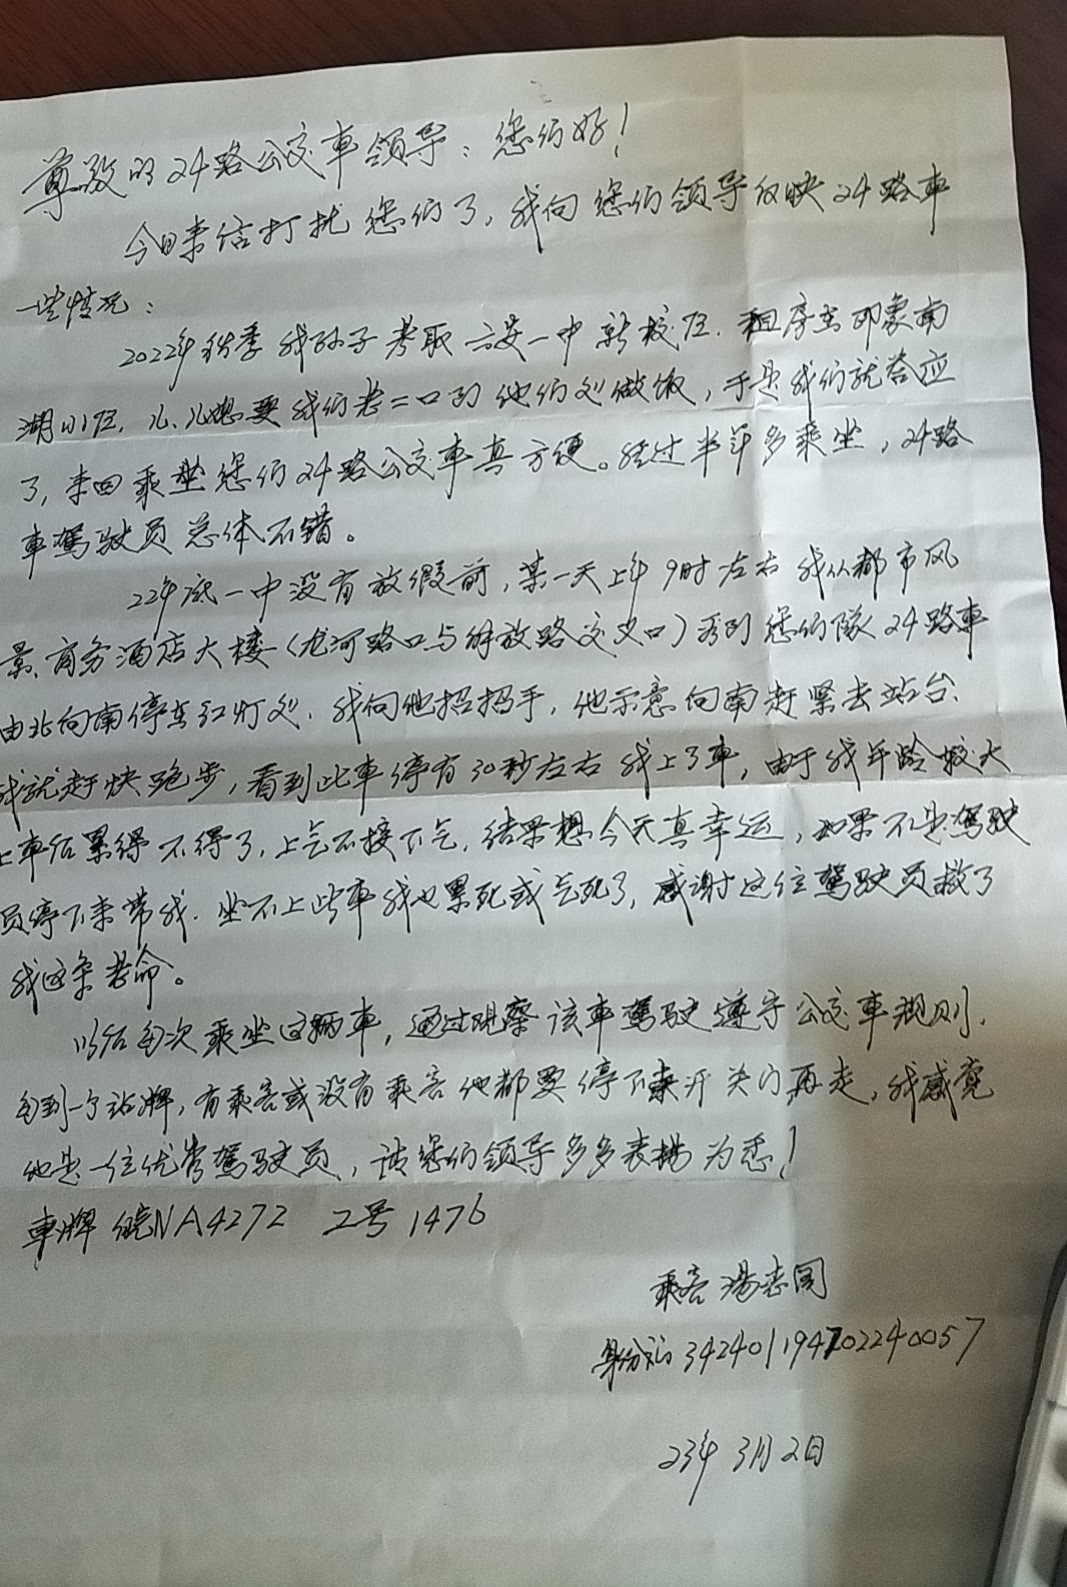 尊敬的24路公交车领导：您们好！
今日来信打扰您们了，我向您们领导反映24路车
一些情况：
2022年秋季我孙子考取六安一中新校区．租房在印象南
湖小区，儿、儿媳要我们老二口到他们处做饭，于是我们就答应
了，来回乘坐您们24路公交车真方便。经过半年多乘坐，24路
车驾驶员总体不错。
22年底一中没有放假前，某一天上午9时左右我从都市风
景商务酒店大楼（龙河路口与解放路交叉口）看到您们队24路车
由北向南停在红灯处．我向他招招手，他示意向南赶紧去站台．
我就赶快跑步，看到此车停有30秒左右我上了车，由于我年龄较大
上车后累得不得了，上气不接下气，结果想今天真幸运，如果不是驾驶
员停下来带我．坐不上此车我也累死或气死了，感谢这位驾驶员救了
我这条老命。
以后每次乘坐这辆车，通过观察该车驾驶遵守公交车规则．
每到一个站牌，有乘客或没有乘客他都要停下来开关门再走，我感觉
他是一位优秀驾驶员，请您们领导多多表扬为悉！
车牌 皖NA4272 2号1476
乘客 汤志国
身份证 342401194702240057
23年3月2日